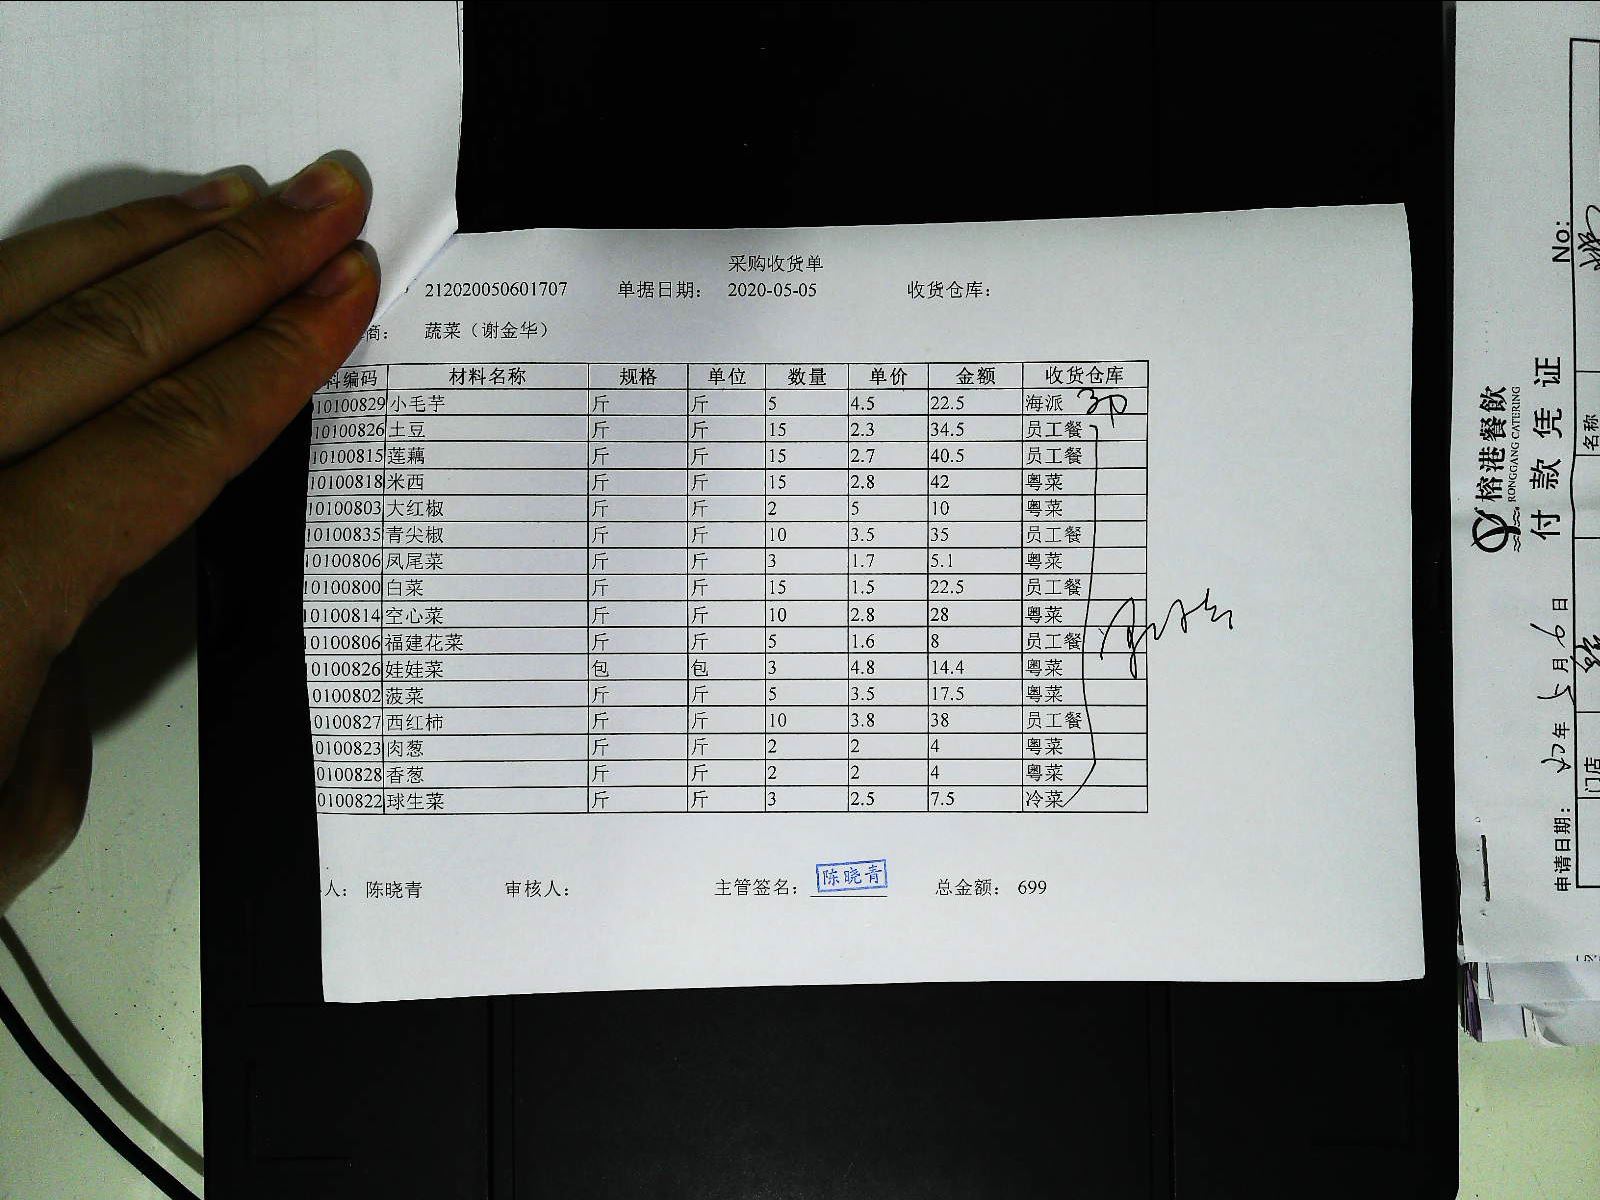 采购收货单
212020050601707 单据日期： 2020-05-05 收货仓库：
商： 蔬菜（谢金华）
料编码 材料名称 规格 单位 数量 单价 金额 收货仓库
10100829 小毛芋 斤 斤 5 4.5 22.5 海派
10100826 土豆 斤 斤 15 2.3 34.5 员工餐
10100815 莲藕 斤 斤 15 2.7 40.5 员工餐
10100818 米西 斤 斤 15 2.8 42 粤菜
10100803 大红椒 斤 斤 2 5 10 粤菜
10100835 青尖椒 斤 斤 10 3.5 35 员工餐
10100806 凤尾菜 斤 斤 3 1.7 5.1 粤菜
10100800 白菜 斤 斤 15 1.5 22.5 员工餐
10100814 空心菜 斤 斤 10 2.8 28 粤菜
0100806 福建花菜 斤 斤 5 1.6 8 员工餐
0100826 娃娃菜 包 包 3 4.8 14.4 粤菜
0100802 菠菜 斤 斤 5 3.5 17.5 粤菜
0100827 西红柿 斤 斤 10 3.8 38 员工餐
0100823 肉葱 斤 斤 2 2 4 粤菜
0100828 香葱 斤 斤 2 2 4 粤菜
0100822 球生菜 斤 斤 3 2.5 7.5 冷菜
人： 陈晓青 审核人： 主管签名： 陈晓青 总金额： 699
榕港餐飲
RONGGANG CATERING
付款凭证
No:
申请日期： 年 5 月 9 日
门店 名称